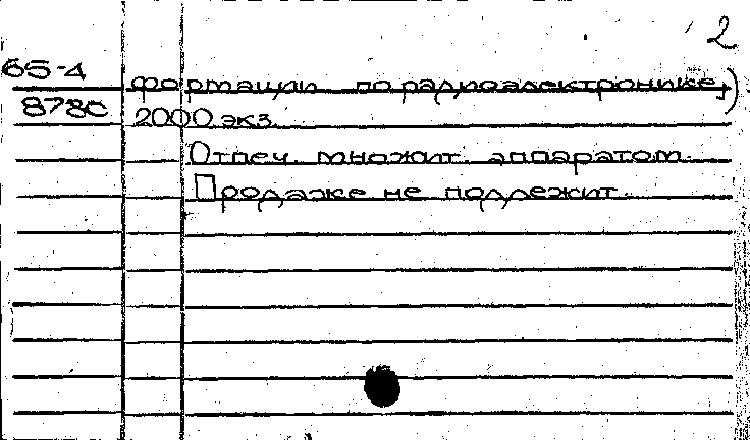 2
65-4 формации по радиоэлектронике)
878с 2000 экз.
Отпеч. множит. аппаратом.
Продаже не подлежит.